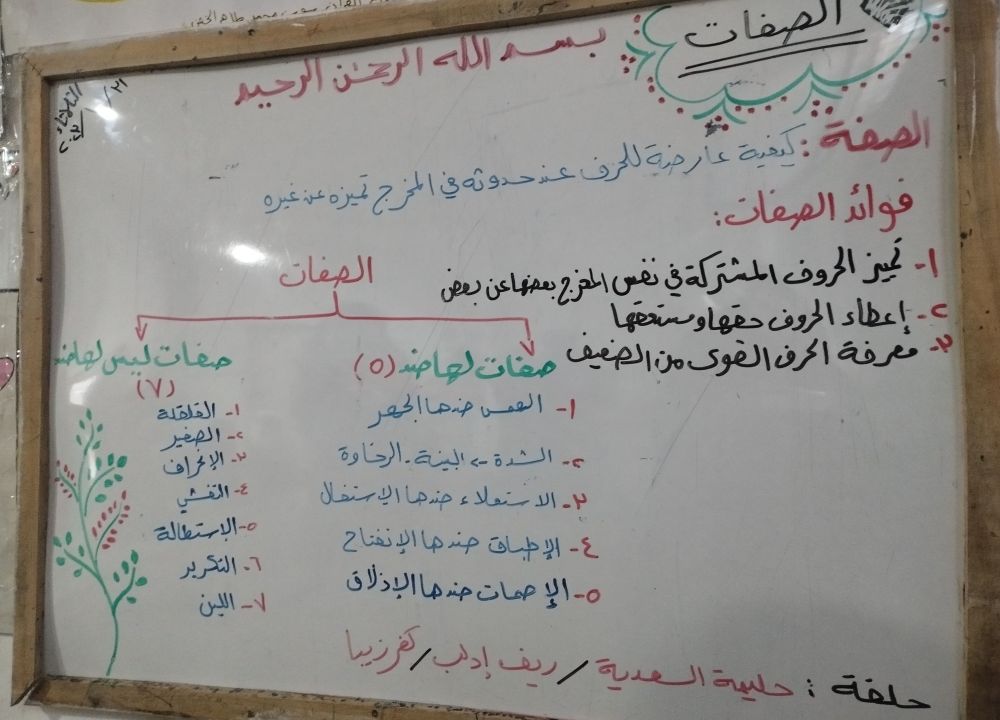 الصفات
بسم الله الرحمن الرحيم
الصفة: كيفية عارضة للحرف عند حدوثه في المخرج تميزه عن غيره
فوائد الصفات:
١- تميز الحروف المشتركة في نفس المخرج بعضها عن بعض
٢- إعطاء الحروف حقها ومستحقها
٣- معرفة الحرف القوي من الضعيف
الصفات
صفات لها ضد (٥)
١- الهمس ضدها الجهر
٢- الشدة -> البينة - الرخاوة
٣- الاستعلاء ضدها الإستفال
٤- الإطباق ضدها الإنفتاح
٥- الإصمات ضدها الإذلاق
صفات ليس لها ضد
(٧)
١- القلقلة
٢- الصفير
٣- الإنحراف
٤- التفشي
٥- الإستطالة
٦- التكرير
٧- اللين
حلقة: حليمة السعدية / ريف إدلب / كفرزيبا